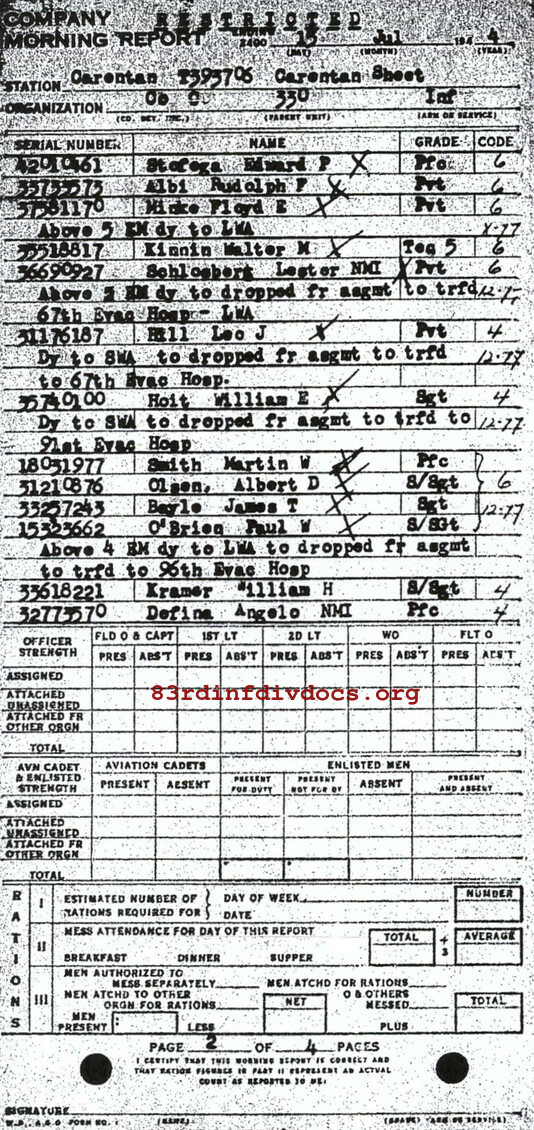 COMPANY RESTRICTED
MORNING REPORT ENDING 2400 15 Jul 194 4
(DAY) (MONTH) (YEAR)
STATION Carentan T393706 Carentan Sheet
ORGANIZATION Co C 330 Inf
(CO. DET. ETC.) (PARENT UNIT) (ARM OR SERVICE)
SERIAL NUMBER NAME GRADE CODE
42010461 Stofega Edward P X Pfc 6
Albi Rudolph F X Pvt 6
37581170 Floyd E X Pvt 6
Above 3 EM dy to LWA
33518817 Kinnin Walter M X Tec 5 6
36690927 Lester NMI X Pvt 6
Above 2 EM dy to dropped fr asgmt to trfd
67th Evac Hosp - LWA
31176187 Hill Leo J X Pvt 4
Dy to SWA to dropped fr asgmt to trfd 12-77
to 67th Evac Hosp.
35740100 Hoit William E X Sgt 4
Dy to SWA to dropped fr asgmt to trfd to 12-77
91st Evac Hosp
18031977 Smith Martin W X Pfc
31210876 Olsen, Albert D X S/Sgt 6
33257243 James T X Sgt 12-77
15323662 O'Brien Paul W X S/SGt
Above 4 EM dy to LWA to dropped fr asgmt
to trfd to 96th Evac Hosp
33618221 Kramer William H S/Sgt 4
32773570 Defina Angelo NMI Pfc 4
OFFICER STRENGTH FLD O & CAPT 1ST LT 2D LT WO FLT O
PRES ABS'T PRES ABS'T PRES ABS'T PRES ABS'T PRES ABS'T
ASSIGNED
ATTACHED UNASSIGNED
ATTACHED FR OTHER ORGN
TOTAL
83rdinfdivdocs.org
AVN CADET & ENLISTED STRENGTH AVIATION CADETS ENLISTED MEN
PRESENT ABSENT PRESENT FOR DUTY PRESENT NOT FOR DY ABSENT PRESENT AND ABSENT
ASSIGNED
ATTACHED UNASSIGNED
ATTACHED FR OTHER ORGN
TOTAL
RATIONS
I ESTIMATED NUMBER OF RATIONS REQUIRED FOR DAY OF WEEK DATE NUMBER
II MESS ATTENDANCE FOR DAY OF THIS REPORT TOTAL ÷ 3 AVERAGE
BREAKFAST DINNER SUPPER
III MEN AUTHORIZED TO MESS SEPARATELY MEN ATCHD FOR RATIONS
MEN ATCHD TO OTHER ORGN FOR RATIONS NET O & OTHERS MESSED TOTAL
MEN PRESENT LESS PLUS
PAGE 2 OF 4 PAGES
I CERTIFY THAT THIS MORNING REPORT IS CORRECT AND
THAT RATION FIGURES IN PART II REPRESENT AN ACTUAL
COUNT AS REPORTED TO ME:
SIGNATURE
W.D., A.G.O FORM NO. 1 (NAME) (GRADE) (ARM OR SERVICE)